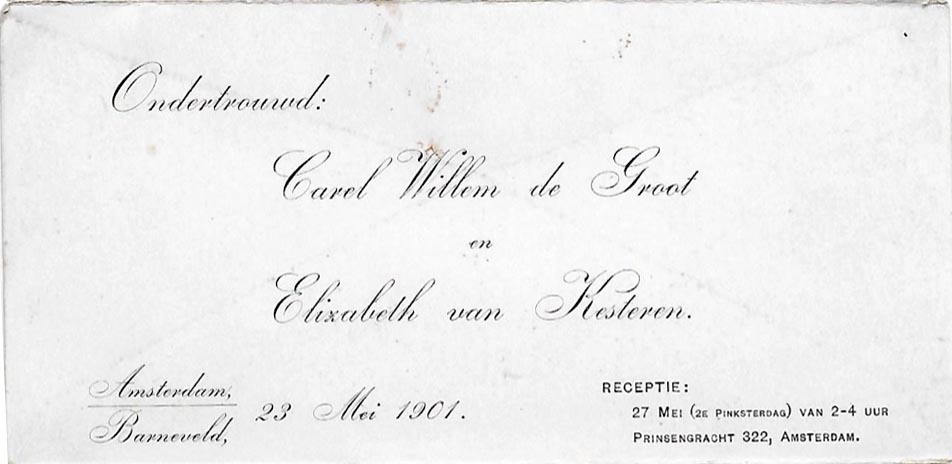 Ondertrouwd:
Carel Willem de Groot
en
Elizabeth van Kesteren.
Amsterdam,
Barneveld,
23 Mei 1901.
RECEPTIE:
27 MEI (2E PINKSTERDAG) VAN 2-4 UUR
PRINSENGRACHT 322, AMSTERDAM.